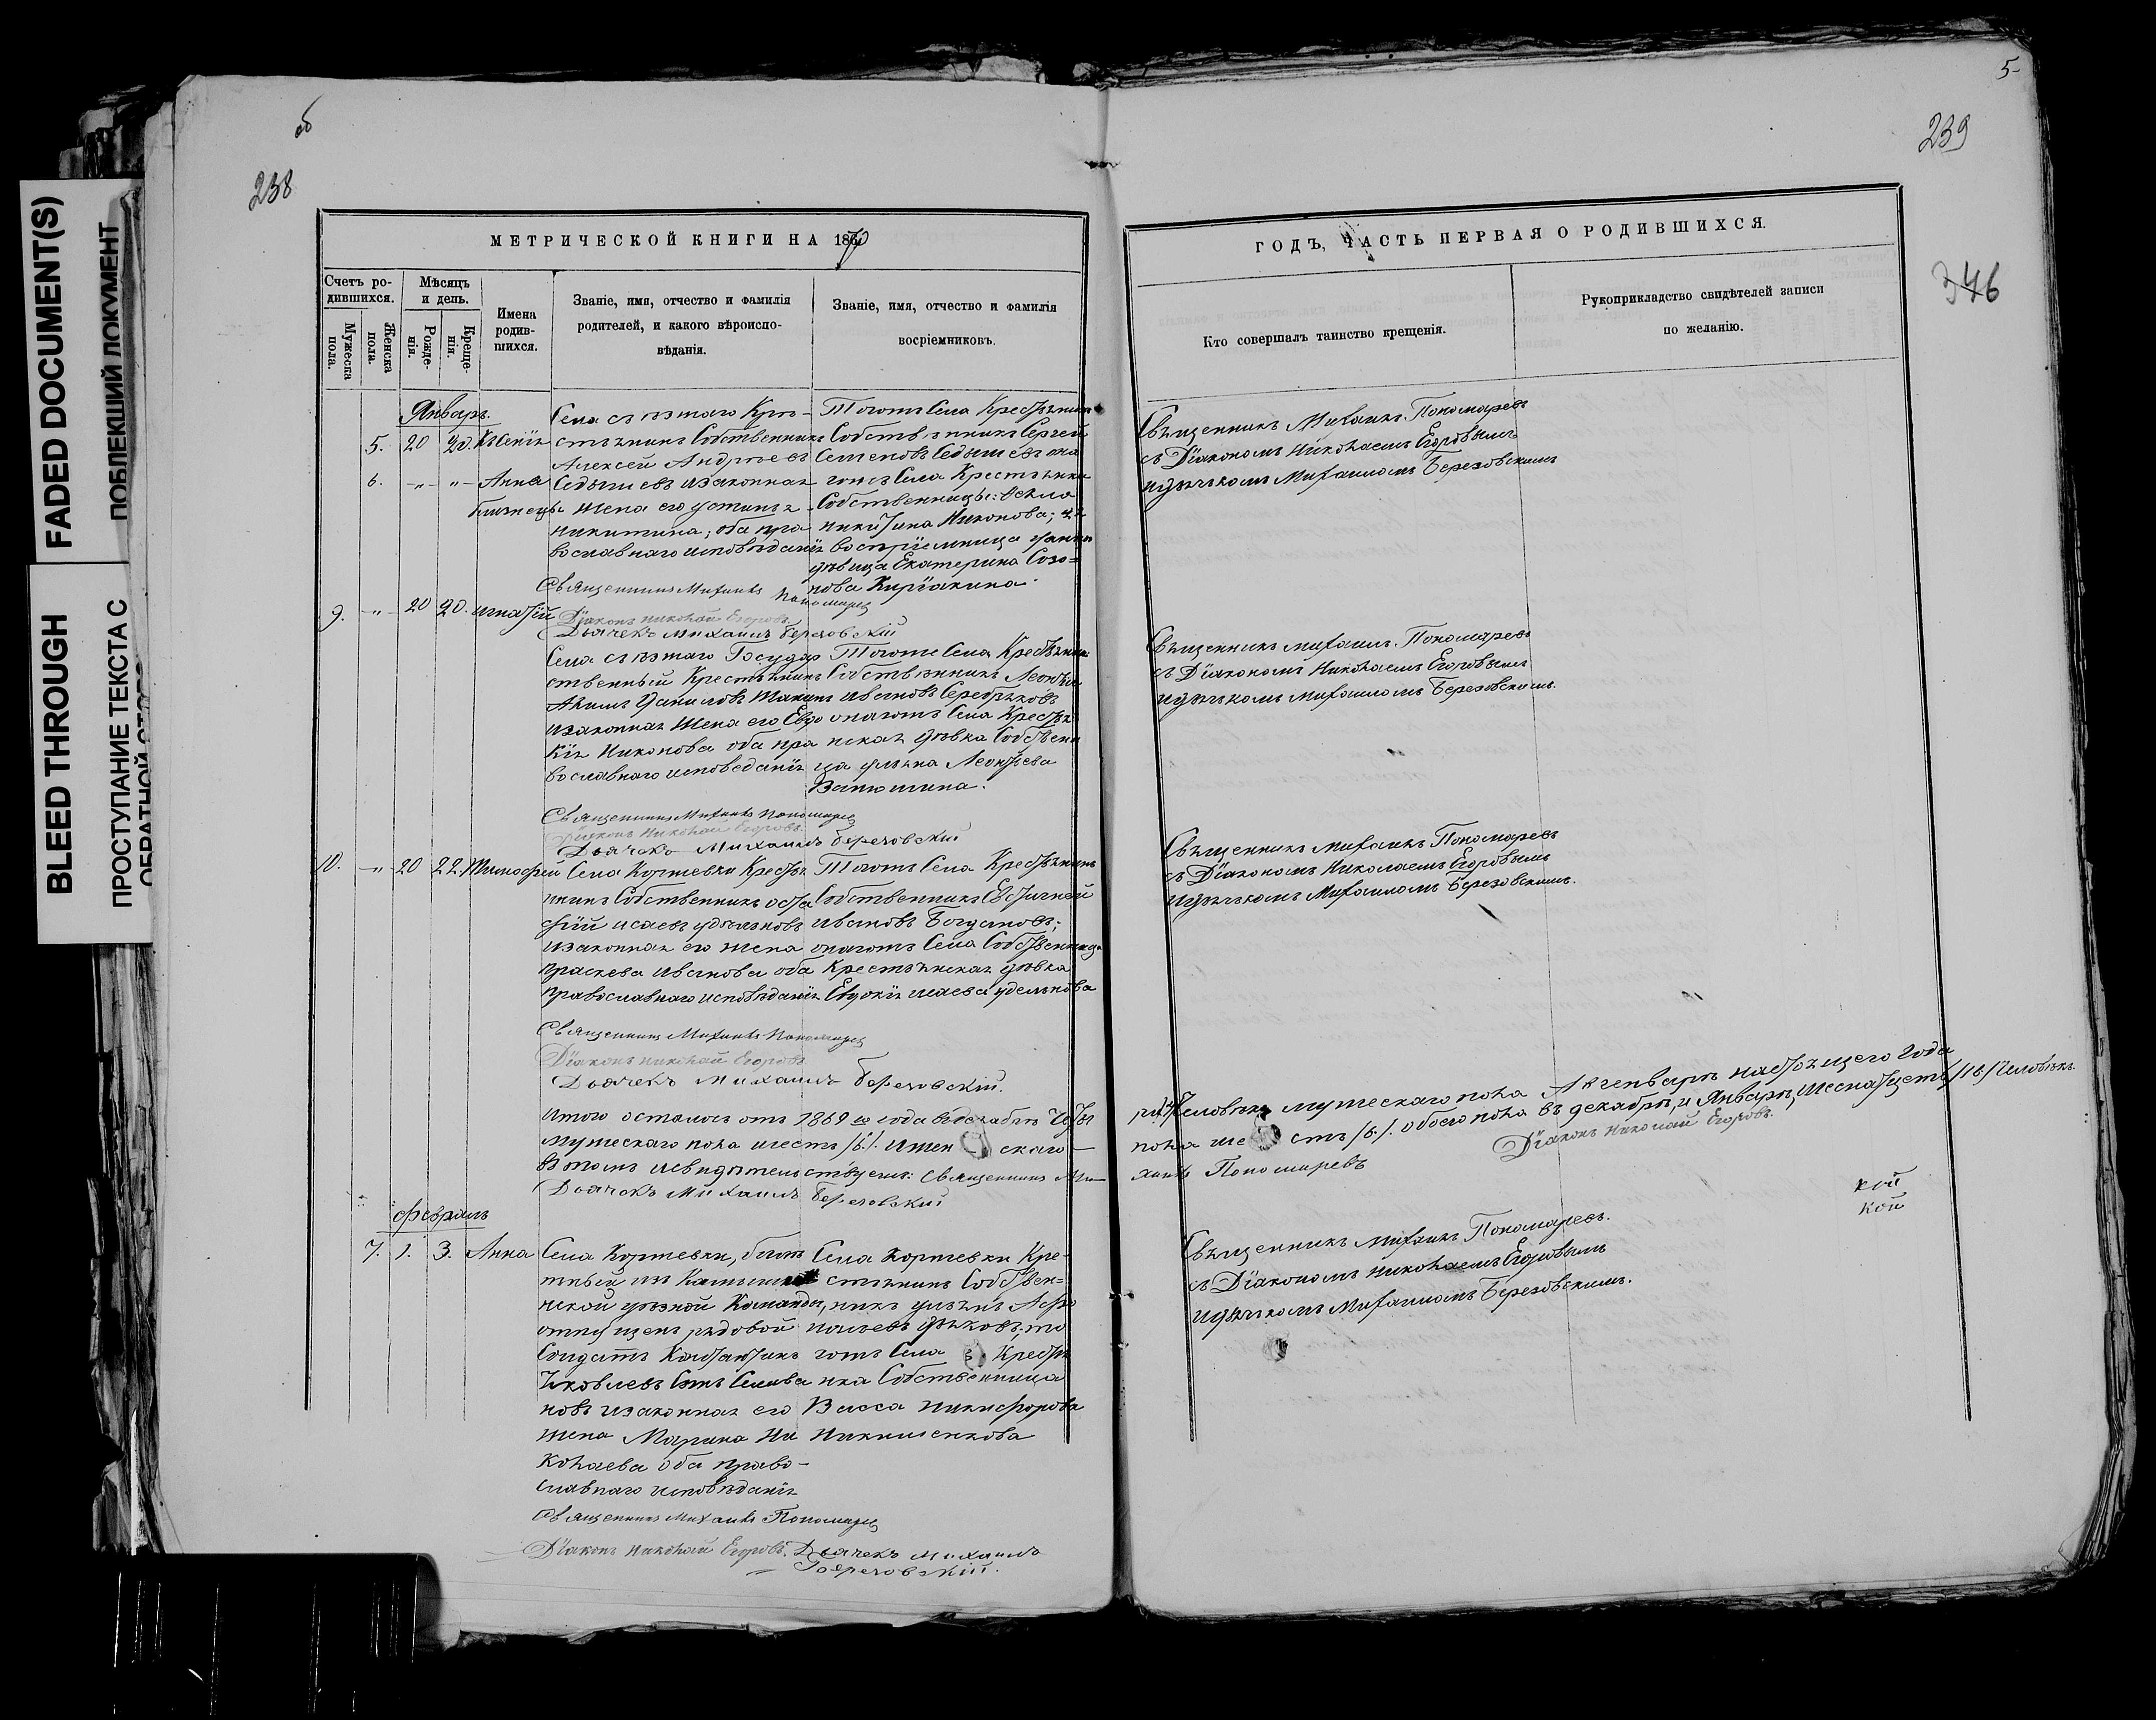 FADED DOCUMENT(S)
ПОБЛЕКШИЙ ДОКУМЕНТ
BLEED THROUGH
ПРОСТУПАНИЕ ТЕКСТА С
ОБРАТНОЙ
об
238
МЕТРИЧЕСКОЙ КНИГИ НА 1870
Счетъ ро-
дившихся.
Мужеска
пола.
Женска
пола.
Мѣсяцъ
и день.
Рожде-
нія.
Креще-
нія.
Имена
родив-
шихся.
Званіе, имя, отчество и фамилія
родителей, и какого вѣроиспо-
вѣданія.
Званіе, имя, отчество и фамилія
воспріемниковъ.
Январь.
5. 20 20. Ксенія
6. -„- -„- Анна
близнецы
Села
стьянинъ Собственникъ
Алексей Андреевъ
Седышевъ изаконная
жена его устинья
никитина; оба пра
вославнаго исповѣданія
Тогожъ Села Крестьянинъ
Собственникъ Сергей
Семеновъ Седышевъ она
гожъ Села Крестьянка
Собственница: Ѳекла
никитина Никонова;
воспріемница
дѣвица Екатерина Созо=
нова Кирѣакина.
Священникъ Михаилъ Пономарев
Діаконъ Николай Егоровъ.
Дьячекъ Михаилъ Березовскій
9. -„- 20 20. Игнатій
Села Государ
ственный Крестьянинъ
Акимъ Даниловъ
изаконная жена его Евдо
кія Никонова оба пра
вославнаго исповеданія
Тогоже Села Крестьянинъ
Собственникъ Леонтій
Ивановъ Серебряковъ
онагожъ Села Крестья
нская дѣвка Собствен
ца Леонтьева
Ванюшина.
Священникъ Михаилъ Пономарев
Діаконъ Николай Егоровъ.
Дьячекъ Михаилъ Березовскій
10. -„- 20 22. Тимофей
Села Коржевки Крестья
нинъ Собственникъ Оста
фій Исаевъ удельновъ
изаконная его жена
праскева Иванова оба
православнаго исповѣданія
Тогожъ Села Крестьянинъ
Собственникъ Евстигней
Ивановъ Богдановъ;
онагожъ Села Собственница
Крестьянская дѣвка
Евдокія исаева удельнова
Священникъ Михаилъ Пономарев
Діаконъ Николай Егоровъ
Дьячекъ Михаилъ Березовскій.
Итого осталось отъ 1869 го года вдекабрѣ
Мужескаго пола шесть /6./. Ижен скаго
Втомъ исвидѣтельствуемъ: Священникъ Ми
Дьячекъ Михаилъ Березовскій
Февраль
7. 1. 3. Анна
Села Коржевки,
тный изъ
нской уѣзной Команды,
отпущенъ рядовой
Солдатъ Константинъ
Яковлевъ Селива
новъ изаконная его
жена Марина Ни
колаева оба право-
славнаго исповѣданія
Села Коржевки Кре-
стьянинъ Собствен=
никъ
гожъ Села Крестья
нка Собственница
Васса никифорова
Никишенкова
Священникъ Михаилъ Пономарев
Діаконъ Николай Егоровъ. Дьячекъ Михаилъ
Березовскій.
5-
239
346
ГОДЪ, ЧАСТЬ ПЕРВАЯ О РОДИВШИХСЯ.
Кто совершалъ таинство крещенія.
Рукоприкладство свидѣтелей записи
по желанію.
Священникъ Михаилъ Пономаревъ
съ Діакономъ Николаемъ Егоровымъ
идьячкомъ Михаиломъ Березовскимъ
Священникъ Михаилъ Пономаревъ
съ Діакономъ Николаемъ Егоровымъ
идьячкомъ Михаиломъ Березовскимъ.
Священникъ Михаилъ Пономаревъ
съ Діакономъ Николаемъ Егоровымъ
идьячкомъ Михаиломъ Березовскимъ.
человѣка мужескаго пола Генварѣ настоящего года
пола ше сть /6./. обоего пола въ декабрѣ, и Январѣ, шеснатцеть /16/ человѣкъ
хаилъ Пономаревъ
Діаконъ Николай Егоровъ.
кой
кой
Священникъ Михаилъ Пономаревъ.
съ Діакономъ Николаемъ Егоровымъ
идьячкомъ Михаиломъ Березовскимъ.